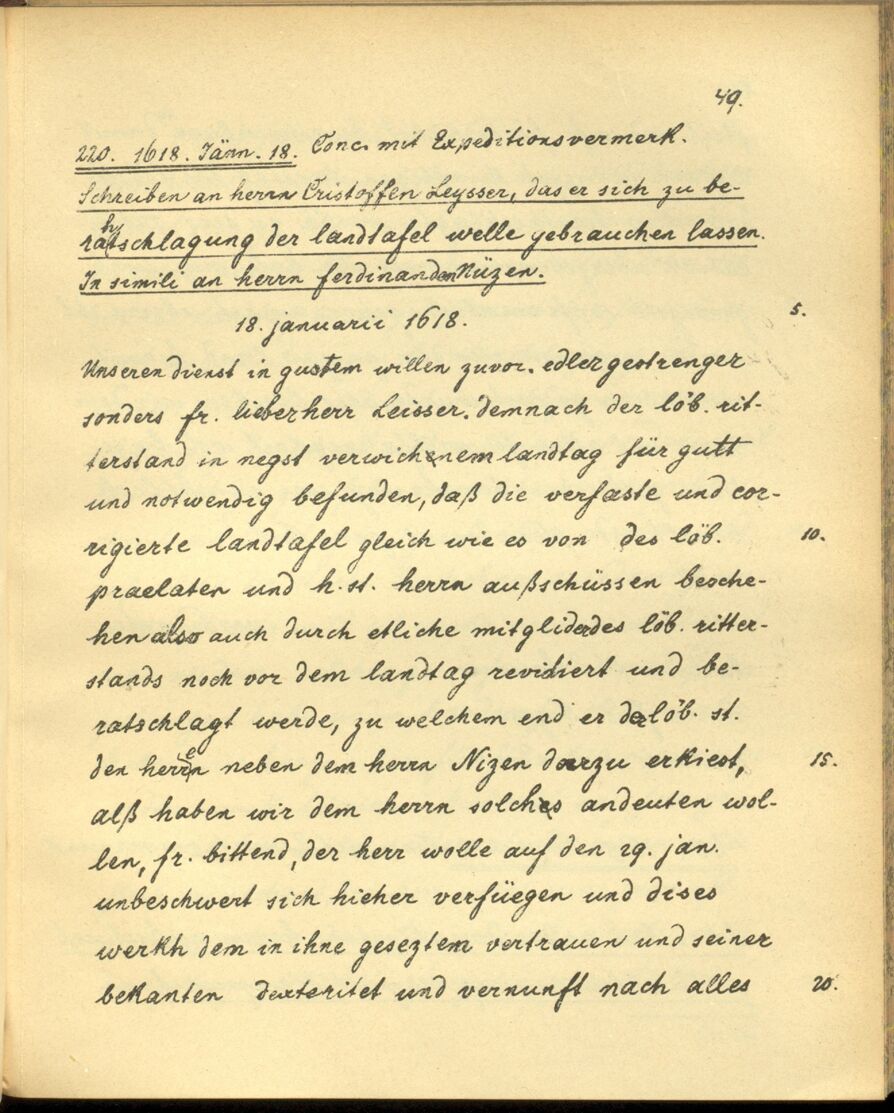 49.
220. 1618. Jänn. 18. Conc. mit Expeditionsvermerk.
Schreiben an herrn Cristoffen Leysser, das er sich zu be-
rahtschlagung der landtafel welle gebrauchen lassen.
In simili an herrn ferdinanden Nüzen.
18. januarii 1618. 5.
Unseren dienst in gustem willen zuvor. edler gestrenger
sonders fr. lieber herr Leisser. demnach der löb. rit-
terstand in negst verwichenem landtag für gutt
und notwendig befunden, daß die verfaste und cor-
rigierte landtafel gleich wie es von des löb. 10.
praelaten und h. st. herrn außschüssen besche-
hen also auch durch etliche mitglider des löb. ritter-
stands noch vor dem landtag revidiert und be-
ratschlagt werde, zu welchem end er der löb. st.
den herren neben dem herrn Nizen darzu erkiest, 15.
alß haben wir dem herrn solches andeuten wol-
len, fr. bittend, der herr wolle auf den 29. jan.
unbeschwert sich hieher verfüegen und dises
werkh dem in ihne geseztem vertrauen und seiner
bekanten dexteritet und vernunft nach alles 20.